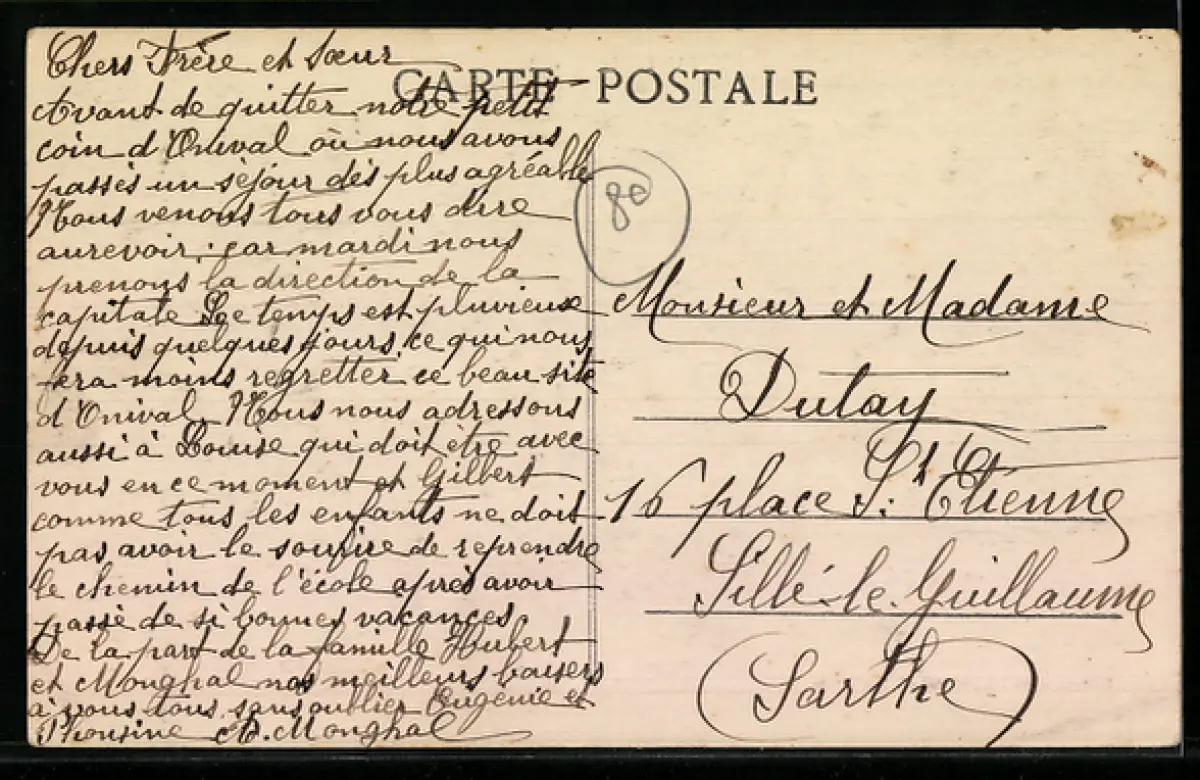 CARTE POSTALE
Chers Frère et Sœur
Avant de quitter notre petit
coin d'Onival où nous avons
passés un séjour des plus agréable
Nous venons tous vous dire
aurevoir, car mardi nous
prenons la direction de la
capitale Le temps est pluvieuse
depuis quelques jours, ce qui nous
fera moins regretter ce beau site
d'Onival. Nous nous adressons
aussi à Louise qui doit être avec
vous en ce moment et Gilbert
comme tous les enfants ne doit
pas avoir le sourire de reprendre
le chemin de l'école après avoir
passé de si bonnes vacances
De la part de la famille Hubert
et Monghal nos meilleurs baisers
à vous tous sans oublier Eugénie et
A. Monghal
80
Monsieur et Madame
Dutay
16 place St Etienne
Sillé-le-Guillaume
(Sarthe)